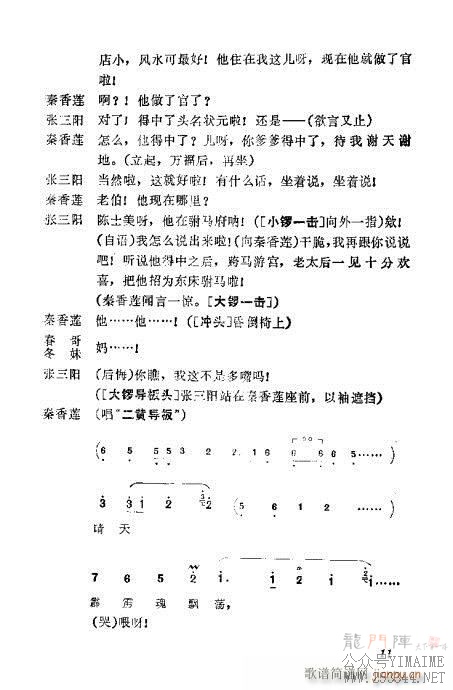 店小，风水可最好！他住在我这儿呀，现在他就做了官
啦！
秦香莲 啊？！他做了官了？
张三阳 对了！得中了头名状元啦！还是——（欲言又止）
秦香莲 怎么，他得中了？儿呀，你爹爹得中了，待我谢天谢
地。（立起，万福后，再坐）
张三阳 当然啦，这就好啦！有什么话，坐着说，坐着说！
秦香莲 老伯！他现在哪里？
张三阳 陈士美呀，他在驸马府呐！（〔小锣一击〕向外一指）欸！
（自语）我怎么说出来啦！（向秦香莲）干脆，我再跟你说说
吧！听说他得中之后，跨马游宫，老太后一见十分欢
喜，把他招为东床驸马啦！
（秦香莲闻言一惊。〔大锣一击〕）
秦香莲 他……他……！（〔冲头〕昏倒椅上）
春哥
冬妹 妈……！
张三阳 （后悔）你瞧，我这不是多嘴吗！
（〔大锣导板头〕张三阳站在秦香莲座前，以袖遮挡）
秦香莲 （唱“二黄导板”）
（6 5 5 5 3 2 2 1 6 6 6 5……）
3 3 1 2 2 （5 6 1 2……）
晴天
7 6 5 2 1. 1 2 1 1……
霹雳魂飘荡，
（哭）喂呀！
11
龙门阵
公众号YIMAIME
歌谱简谱网
www.298844.net